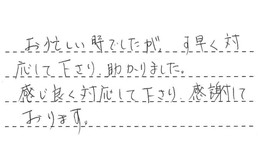 お忙しい時でしたが、す早く対
応して下さり、助かりました。
感じ良く対応して下さり、感謝して
おります。